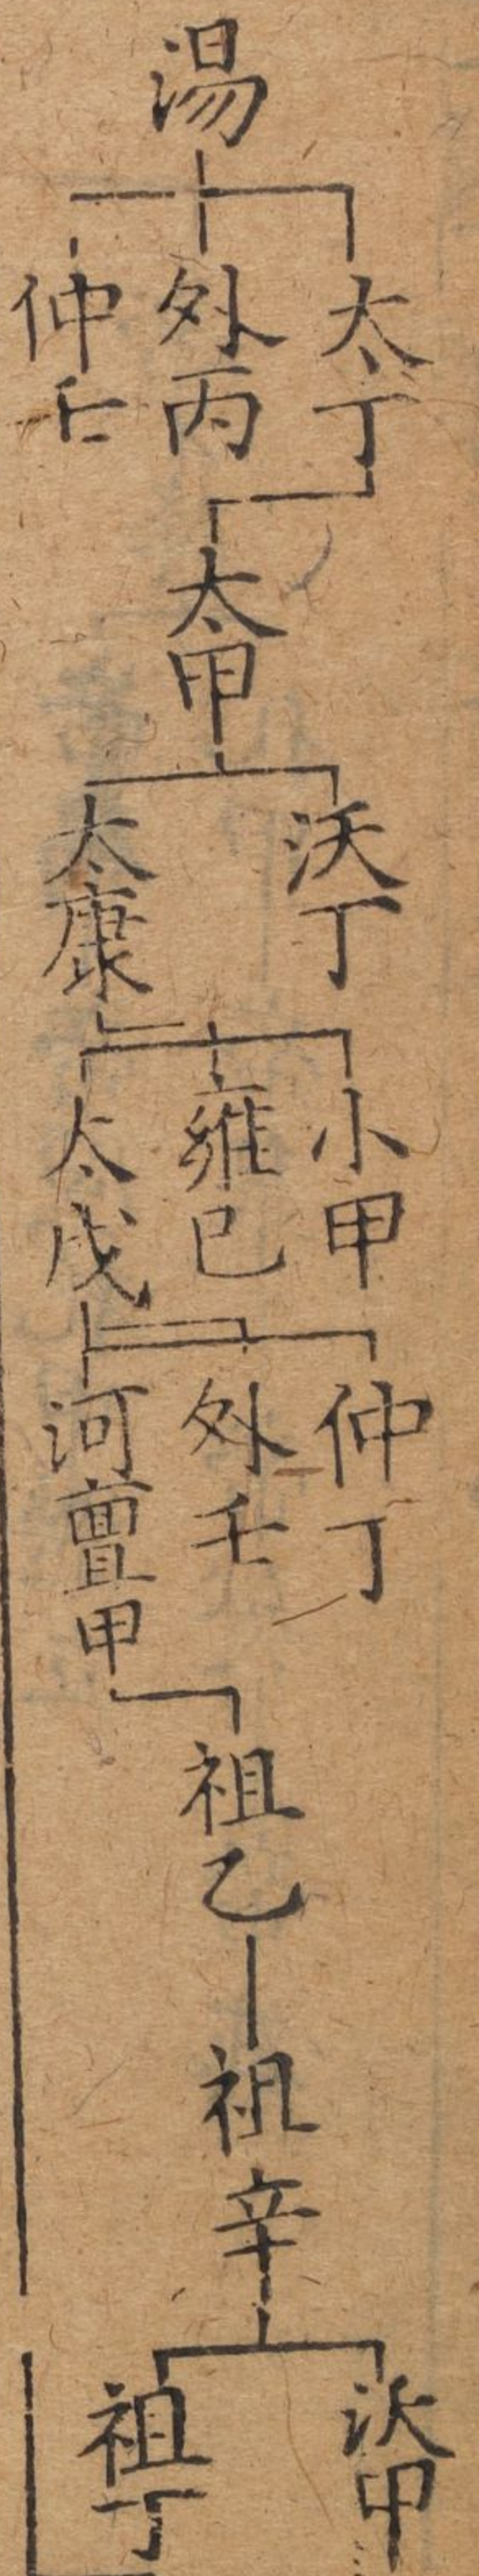 湯
太丁
外丙
仲壬
太甲
沃丁
太康
小甲
雍己
太戊
仲丁
外壬
河亶甲
祖乙
祖辛
沃甲
祖丁